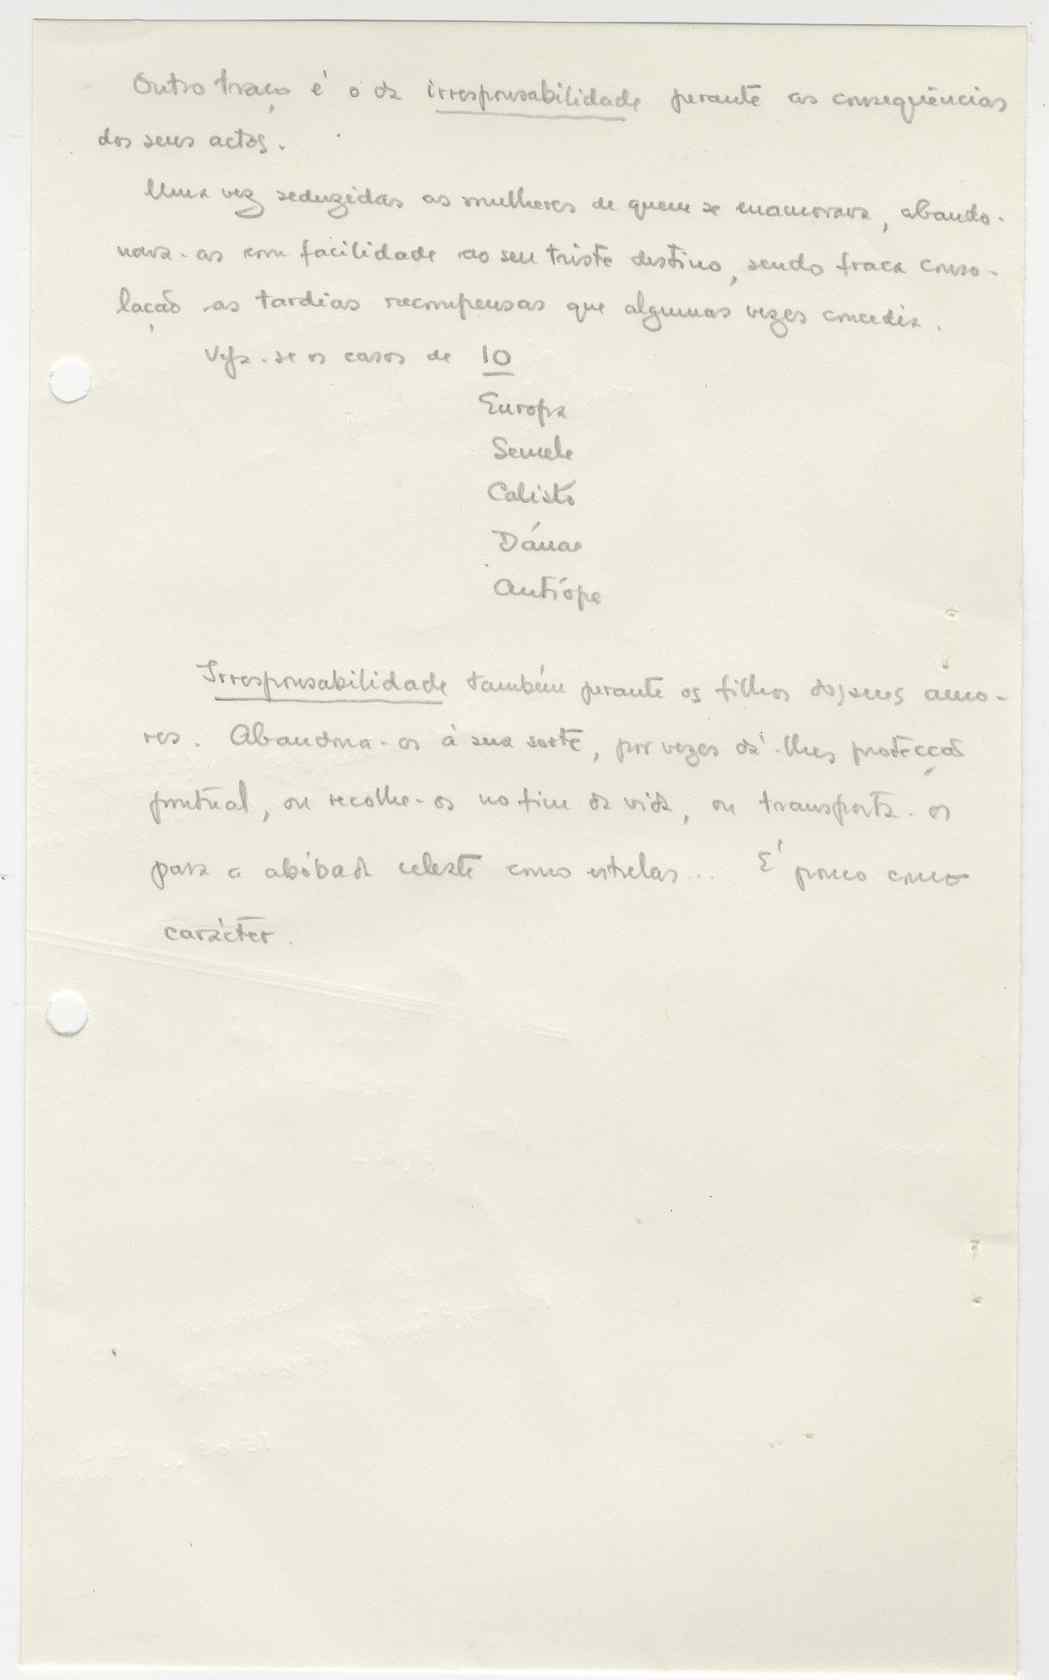 Outro traço é o da irresponsabilidade perante as consequências
dos seus actos.
Uma vez seduzidas as mulheres de quem se enamorava, abando-
nava-as com facilidade ao seu triste destino, sendo fraca conso-
lação as tardias recompensas que algumas vezes concedia.
Veja-se os casos de IO
Europa
Semele
Calisto
Dánae
Antíope
Irresponsabilidade também perante os filhos dos seus amo-
res. Abandona-os à sua sorte, por vezes dá-lhes protecção
pontual, ou recolhe-os no fim da vida, ou transporta-os
para a abóbada celeste como estrelas... É pouco como
carácter.